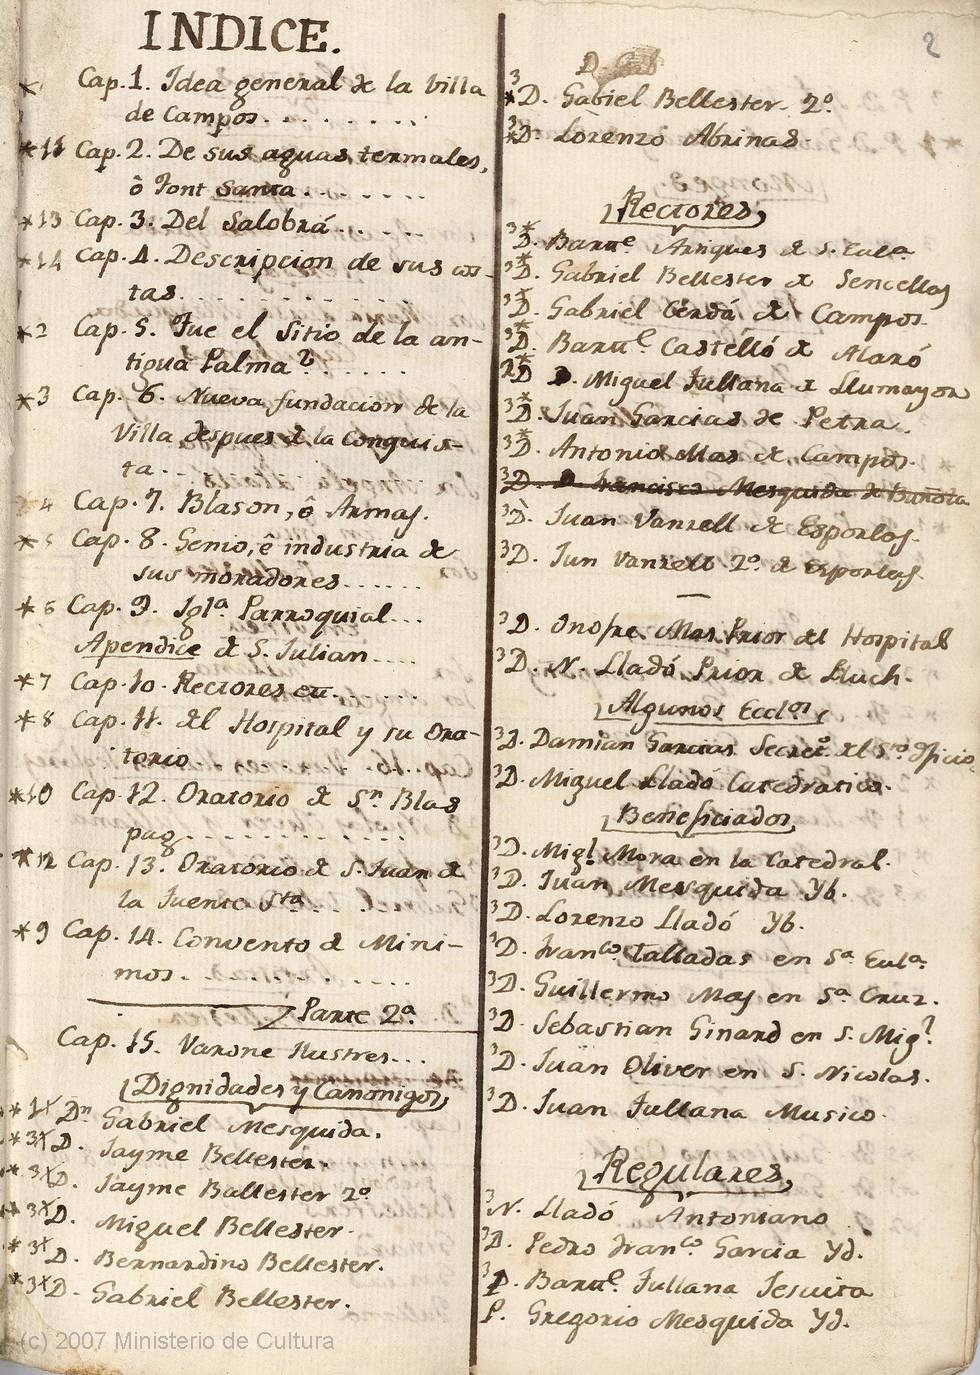 INDICE.
* Cap. 1. Idea general de la Villa
de Campos. . . . . . . .
*11 Cap. 2. De sus aguas termales,
ò Font Santa. . . . . . .
*13 Cap. 3. Del Salobrá. . . . .
*14 Cap. 4. Descripcion de sus cos-
tas. . . . . . . . . . . .
*2 Cap. 5. Fue el Sitio de la an-
tigua Palma ? . . . . .
*3 Cap. 6. Nueva fundacion de la
Villa despues de la Conquis-
ta. . .
4 Cap. 7. Blason, ô Armas.
*5 Cap. 8. Genio, ê industria de
sus moradores. . . . . .
*6 Cap. 9. Igla. Parroquial. . .
Apendice de S. Julian. . . .
*7 Cap. 10. Rectores etc. . . . .
*8 Cap. 11. del Hospital y su Ora-
torio
*10 Cap. 12. Oratorio de Sn. Blas
pag. . . . . . . . . . .
*12 Cap. 13. Oratorio de S. Juan de
la Fuente Sta. . . .
*9 Cap. 14. Convento de Mini-
mos. . . . . . . . .
Parte 2a.
Cap. 15. Varone Ilustres. . .
Dignidades y Canonigos,
Dn. Gabriel Mesquida.
*3X D. Jayme Bellester.
*3X D. Jayme Ballester 2o.
*3X D. Miguel Bellester.
*3X D. Bernardino Bellester.
*3X D. Gabriel Bellester.
2
D. Gab
3 *D. Gabiel Bellester. 2o.
3 *D. Lorenzo Abrinas.
Rectores,
3*D. Barme. Arigues de S. Eula.
3*D. Gabriel Bellester de Sencellas
3*D. Gabriel Cerdá de Campos.
3*D. Barme. Castelló de Alaró
D. Miguel Jullana de Llumayor
3*D. Juan Garcias de Petra.
3*D. Antonio Mas de Campos.
3D. Francisco Mesquida de Buñola
3D. Juan Vanrell de Esporlas.
3D. Jun Vanrell 2o. de Esporlas.
3D. Onofre Mas Prior del Hospital
3D. N. Lladó Prior de Lluch.
Algunos Eccos,
3D. Damian Garcias Secreo. del Sto. Oficio
3D. Miguel Lladó Catedratico.
Beneficiados,
3D. Migl. Mora en la Catedral.
3D. Juan Mesquida Yb.
3D. Lorenzo Lladó Yb.
3D. Franco. Talladas en Sa. Eula.
3D. Guillermo Mas en Sa. Cruz.
3D. Sebastian Ginard en S. Migl.
3D. Juan Oliver en S. Nicolas.
3D. Juan Jullana Musico.
Regulares,
3N. Lladó Antoniano
3D. Pedro Franco. Garcia Yd.
3P. Barme. Jullana Jesuita
P. Gregorio Mesquida Yd.
(c) 2007 Ministerio de Cultura